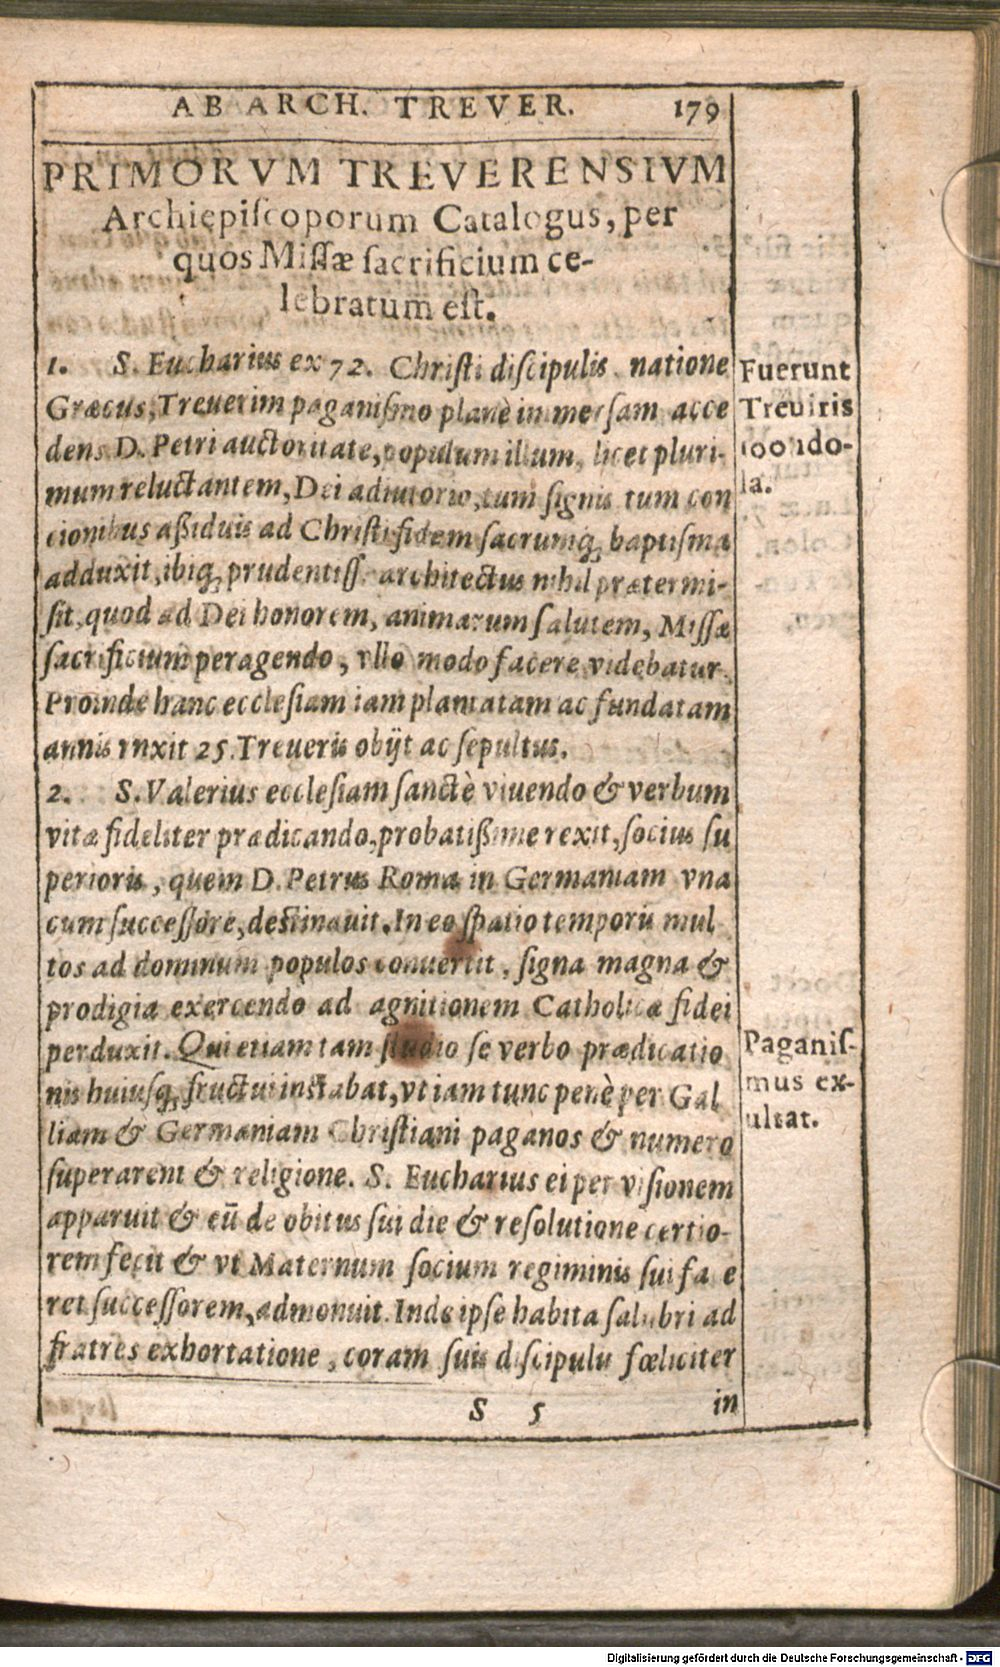 AB ARCH. TREVER. 179
PRIMORVM TREVERENSIVM
Archiepiſcoporum Catalogus, per
quos Miſſæ ſacrificium ce-
lebratum eſt.
1. S. Eucharius ex 72. Chriſti diſcipulis natione
Græcus, Treuerim paganiſmo planè immerſam acce
dens D. Petri auctoritate, populum illum, licet pluri-
mum reluctantem, Dei adiutorio, tum ſignis tum con
cionibus aßiduis ad Chriſti fidem ſacrumq; baptiſma
adduxit, ibiq; prudentiſſ. architectus nihil prætermi-
ſit, quod ad Dei honorem, animarum ſalutem, Miſſæ
ſacrificium peragendo, vllo modo facere videbatur.
Proinde hanc eccleſiam iam plantatam ac fundatam
annis rnxit 25. Treueris obijt ac ſepultus.
2. S. Valerius eccleſiam ſanctè viuendo & verbum
vitæ fideliter prædicando, probatißime rexit, ſocius ſu
perioris, quem D. Petrus Roma in Germaniam vna
cum ſucceſſore, deſtinauit. In eo ſpatio temporis mul
tos ad dominum populos conuertit, ſigna magna &
prodigia exercendo ad agnitionem Catholicæ fidei
perduxit. Qui etiam tam ſtudio ſe verbo prædicatio
nis huiusq; fructui inſtabat, vt iam tunc penè per Gal
liam & Germaniam Chriſtiani paganos & numero
ſuperarent & religione. S. Eucharius ei per viſionem
apparuit & eū de obitus ſui die & reſolutione certio-
rem fecit & vt Maternum ſocium regiminis ſui fa e
ret ſucceſſorem, admonuit. Inde ipſe habita ſalubri ad
fratres exhortatione, coram ſuis diſcipulis fœliciter
S 5 in
Fuerunt
Treuiris
100 ido-
la.
Paganiſ-
mus ex-
ultat.
Digitalisierung gefördert durch die Deutsche Forschungsgemeinschaft - DFG